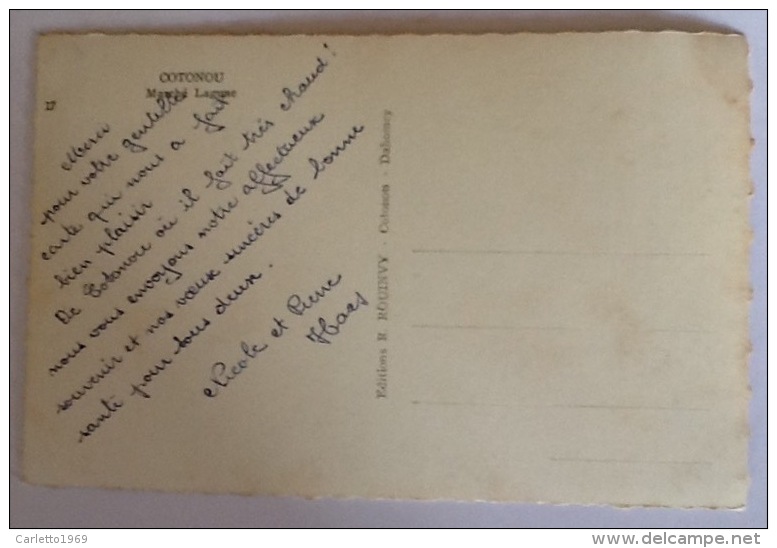 17
COTONOU
Marché Lagune
Merci
pour votre gentille
carte qui nous a fait
bien plaisir
De Cotonou où il fait très chaud !
nous vous envoyons notre affectueux
souvenir et nos vœux sincères de bonne
santé pour tous deux.
Nicole et Pierre
Haas
Editions R. ROUINVY - Cotonou - Dahomey
Carletto1969
www.delcampe.net